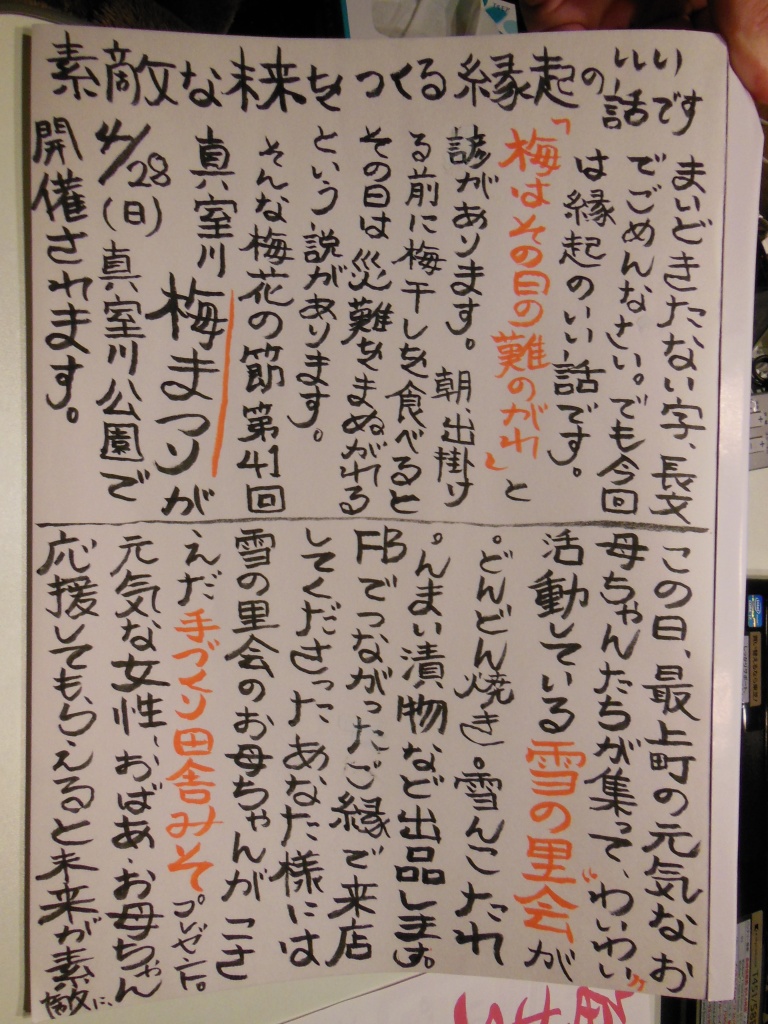 素敵な未来をつくる縁起のいい話です
まいどきたない字、長文
でごめんなさい。でも今回
は縁起のいい話です。
「梅はその日の難のがれ」と
諺があります。朝、出掛け
る前に梅干しを食べると
その日は災難をまぬがれる
という説があります。
そんな梅花の節第41回
真室川梅まつりが
4/28(日)真室川公園で
開催されます。
この日、最上町の元気なお
母ちゃんたちが集って、“わいわい”
活動している雪の里会が
。どんどん焼き。雪んこたれ
。んまい漬物など出品します。
FBでつながったご縁で来店
してくださったあなた様には
雪の里会のお母ちゃんがこさ
えだ手づくり田舎みそプレゼント。
元気な女性、おばあ・お母ちゃん
応援してもらえると未来が素
敵に、